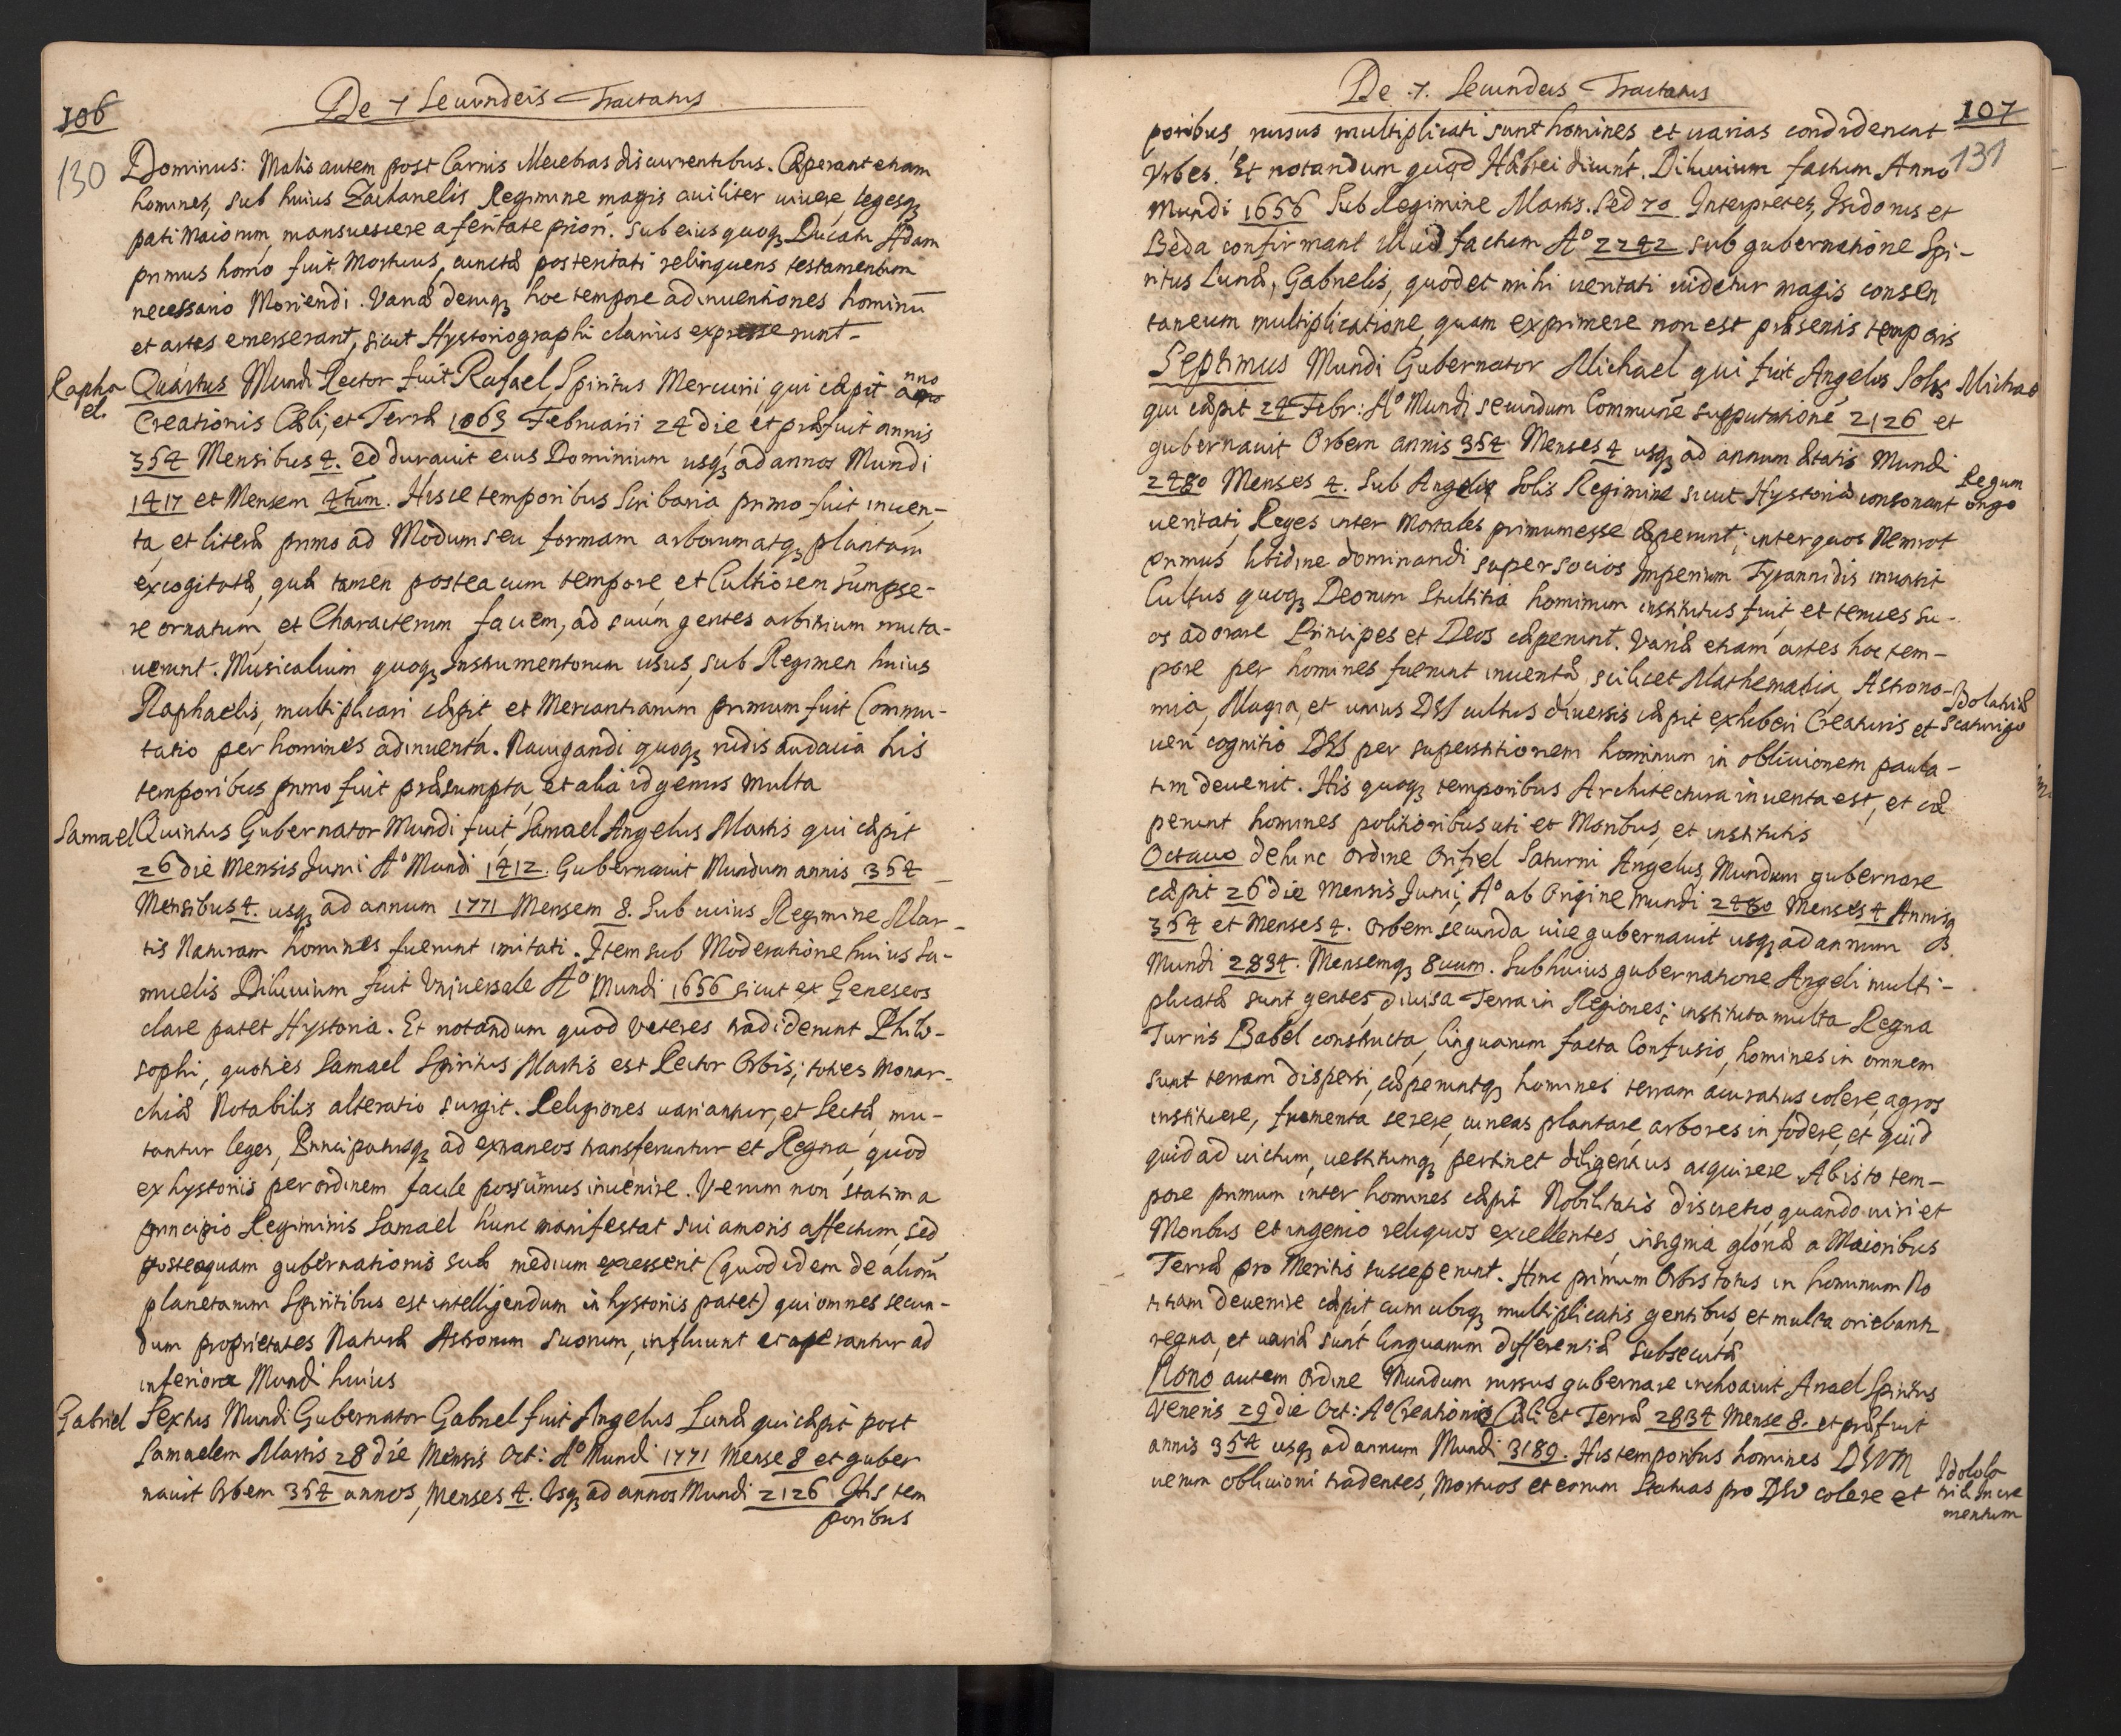 106
De 7 Secundeis Tractatus
130
Dominus: Malis autem post Carnis illecebras discurrentibus. Cœperant etiam
homines, sub huius Zachanelis Regimine magis ciuiliter uiuere, legesqꝫ
pati Maiorum, mansuescere a feritate priori. Sub eius quoqꝫ Ducatu Adam
primus homo fuit Mortuus, cunctæ posteritati relinquens testamentum
necessario Moriendi. Variæ deniqꝫ hoc tempore adinuentiones hominū
et artes emerserant, sicut Hystoriographi clarius expresserunt.
Rapha
el.
Quartus Mundi Rector fuit Rafael, Spiritus Mercurii, qui cœpit anno
Creationis Cœli, et Terræ 1063 Februarii 24 die et præfuit annis
354 Mensibus 4. ed durauit eius Dominium usqꝫ ad annos Mundi
1417 et Mensem 4tum. Hisce temporibus Scribaria primo fuit inuen-
ta, et literæ primo ad Modum seu formam arborum atqꝫ plantarū
excogitatæ, quæ tamen postea cum tempore, et Cultiorem sumpse-
re ornatum, et Characterum faciem, ad suum gentes arbitrium muta-
uerunt. Musicalium quoqꝫ Instrumentorum usus, sub Regimen huius
Raphaelis, multiplicari cœpit, et Mercantiarum primum fuit Commu-
tatio per homines adinuenta. Nauigandi quoqꝫ rudis audacia his
temporibus primo fuit præsumpta, et alia id genus multa
Samael
Quintus Gubernator Mundi fuit, Samael Angelus Martis qui cœpit
26 die Mensis Junii A° Mundi 1412. Gubernauit Mundum annis 354
Mensibus 4. usqꝫ ad annum 1771 Mensem 8. Sub cuius Regimine Mar-
tis Naturam homines fuerunt imitati. Item sub Moderatione huius Sa-
muelis Diluuium fuit Vniuersale A° Mundi 1656 sicut ex Geneseos
clare patet Hystoria. Et notandum quod Veteres tradiderunt Philo-
sophi, quoties Samael Spiritus Martis est Rector Orbis; toties Monar-
chiæ Notabilis alteratio surgit. Religiones uariantur, et Sectæ, mu-
tantur leges, Principatusqꝫ ad extraneos transferuntur et Regna, quod
ex hystoriis per ordinem facile possumus inuenire. Verum non statim a
principio Regiminis Samael hunc manifestat sui amoris affectum, sed
posteaquam gubernationis suæ medium excesserit (quod idem de aliorū
planetarum Spiritibus est intelligendum in hystoriis patet) qui omnes secun-
dum proprietates Naturæ Astrorum suorum, influunt et operantur ad
inferiora Mundi huius
Gabriel
Sextus Mundi Gubernator Gabriel fuit Angelus Lunæ qui cœpit post
Samaelem Martis 28 die Mensis Oct: A° Mundi 1771 Mense 8 et guber
nauit Orbem 354 annos, Menses 4. Vsqꝫ ad annos Mundi 2126 His tem
poribus
De .7. Secundeis Tractatus
107
131
poribus, rursus multiplicati sunt homines et uarias condiderunt
Vrbes. Et notandum quod Hæbrei dicunt. Diluuium factum Anno
Mundi 1656 Sub Regimine Martis. Sed 70 Interpretes, Isidorus et
Beda confirmant illud factum A° 2242 sub gubernatione Spi-
ritus Lunæ, Gabrielis, quod et mihi ueritati uidetur magis consen
taneum multiplicatione, quam exprimere non est præsentis temporis
Septimus Mundi Gubernator Michael qui fuit Angelus Solis
Michae
qui cœpit 24 Febr: A° Mundi secundum Communē supputationē 2126 et
gubernauit Orbem annis 354 Menses 4 usqꝫ ad annum ætatis Mundi
2480 Menses 4. Sub Angelis Solis Regimine sicut Hystoriæ consonant
Regum
origo
ueritati, Reges inter Mortales primum esse cœperunt; inter quos Nemrot
primus libidine dominandi super socios Imperium Tyrannidis inuasit
Cultus quoqꝫ Deorum Stultitia hominum institutus fuit, et tenues su-
os adorare Principes et Deos cœperunt. Variæ etiam artes hoc tem-
pore per homines fuerunt inuentæ, scilicet Mathematia, Astrono-
mia, Magia, et unius DEI cultus diuersis cœpit exhiberi Creaturis et
Idolatriæ
scaturigo
ueri cognitio DEI per superstitionem hominum in obliuionem paula-
tim deuenit. His quoqꝫ temporibus Architectura inuenta est, et cœ
perunt homines politioribus uti et Moribus, et institutis
Octauo dehinc ordine Orifiel Saturni Angelus, Mundum gubernare
cœpit 26 die Mensis Junii, A° ab Origine mundi 2480 Menses 4 Annisqꝫ
354 et Menses 4. Orbem secunda uice gubernauit usqꝫ ad annum
Mundi 2834. Mensemqꝫ 8uum. Sub huius gubernatione Angeli multi-
plicatæ sunt gentes, diuisa Terra in Regiones; instituta multa Regna
Turris Babel constructa, linguarum facta Confusio, homines in omnem
sunt terram dispersi, cœperuntqꝫ homines terram accuratius colere, agros
instituere, frumenta serere, uineas plantare, arbores infodere, et quid
quid ad uictum, uestitumqꝫ pertinet diligentius acquirere. Ab isto tem-
pore primum inter homines cœpit Nobilitatis discretio, quando uiri et
Moribus et ingenio reliquos excellentes, insignia gloriæ a Maioribus
Terræ pro Meritis susceperunt. Hinc primum Orbis totus in hominum No
titiam deuenire cœpit, cum ubiqꝫ multiplicatis gentibus, et multa oriebant
regna, et uariæ sunt linguarum differentiæ subsecutæ
Nono autem ordine Mundum rursus gubernare inchoauit Anael Spiritus
Veneris 29 die Oct: A° Creationis Cœli et Terræ 2834 Mense 8. et præfuit
annis 354 usqꝫ ad annum Mundi 3189. His temporibus homines DEVM
uerum obliuioni tradentes, Mortuos et eorum Statuas pro DEO colere et
Idolola
triæ Incre
mentum